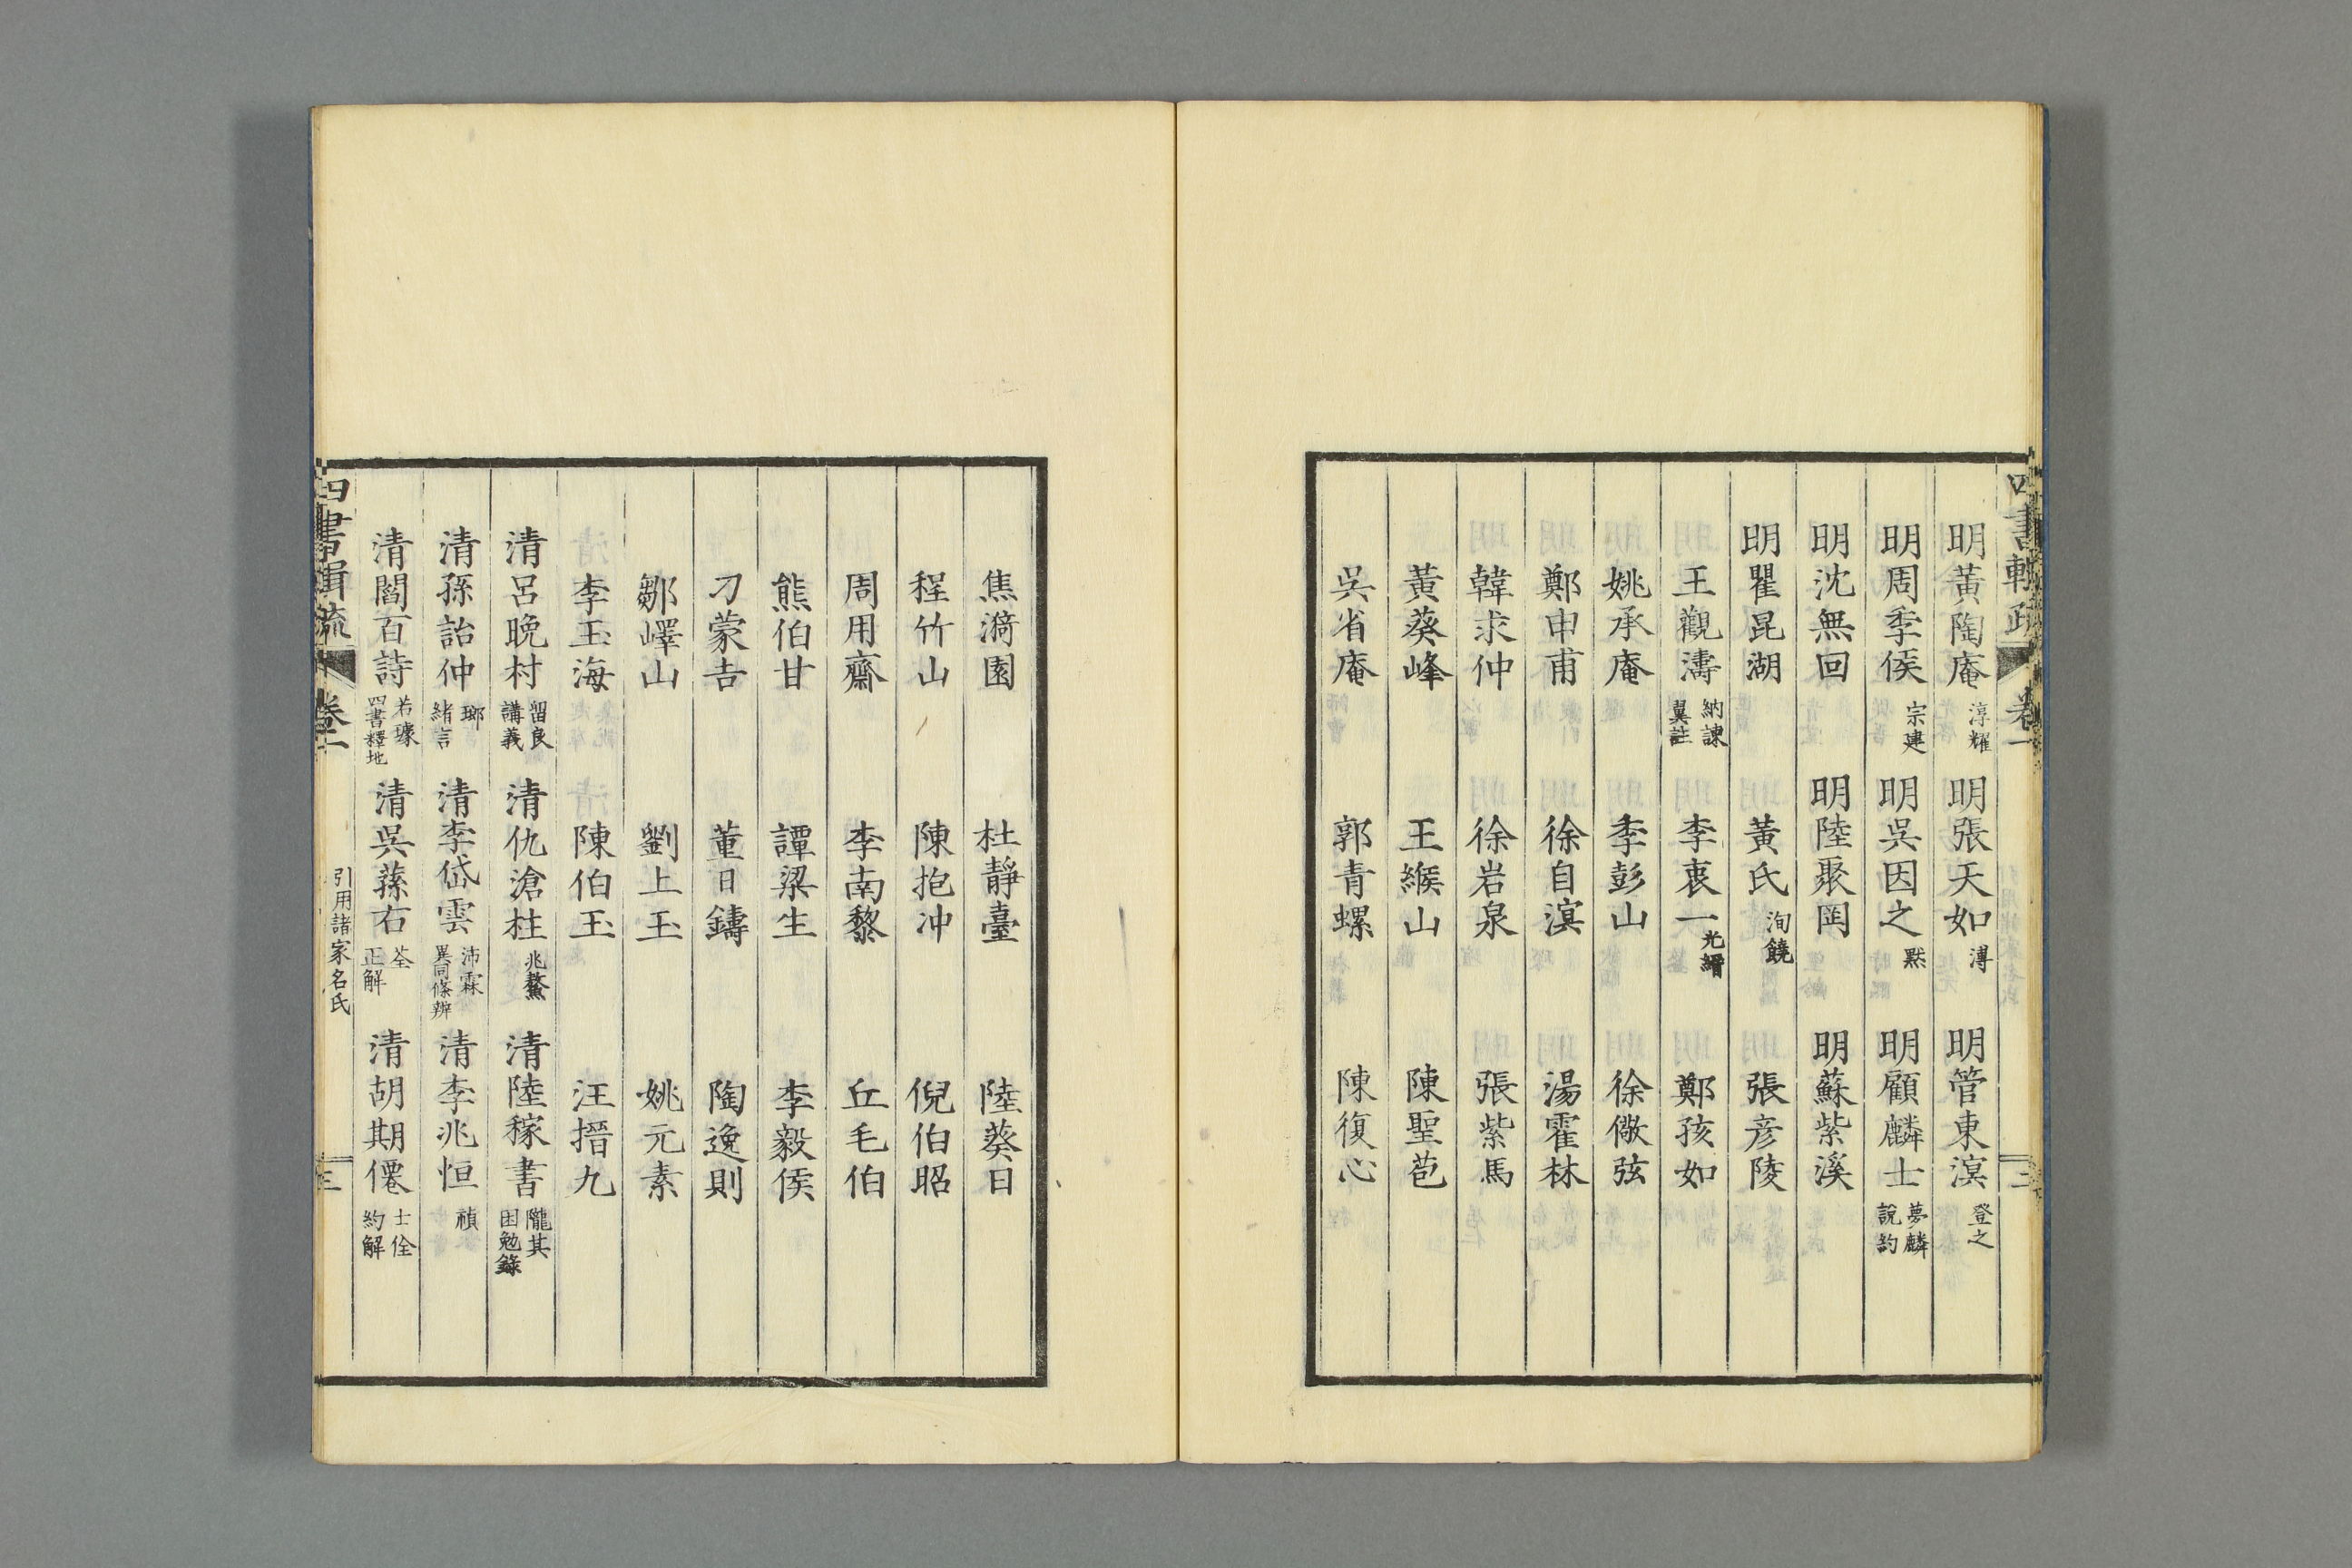 明黃陶庵 淳耀 明張天如 溥 明管東溟 登之
明周季侯 宗建 明吳因之 默 明顧麟士 夢麟 說約
明沈無回 明陸聚岡 明蘇紫溪
明瞿昆湖 黃氏 洵饒 張彥陵
王觀濤 納諫 翼註 李衷一 光縉 鄭孩如
姚承庵 李彭山 徐儆弦
鄭申甫 徐自溟 湯霍林
韓求仲 徐岩泉 張紫馬
黃葵峰 王緱山 陳聖苞
吳省庵 郭青螺 陳復心
焦漪園 杜靜臺 陸葵日
程竹山 陳抱冲 倪伯昭
周用齋 李南黎 丘毛伯
熊伯甘 譚梁生 李毅侯
刁蒙吉 董日鑄 陶逸則
鄒嶧山 劉上玉 姚元素
李玉海 陳伯玉 汪搢九
清呂晚村 留良 講義 清仇滄柱 兆鰲 清陸稼書 隴其 困勉錄
清孫詒仲 瑯 緒言 清李岱雲 沛霖 異同條辨 清李兆恒 禎
清閻百詩 若璩 四書釋地 清吳蓀右 荃 正解 清胡期僊 士佺 約解
四書輯疏 卷一 引用諸家名氏 三